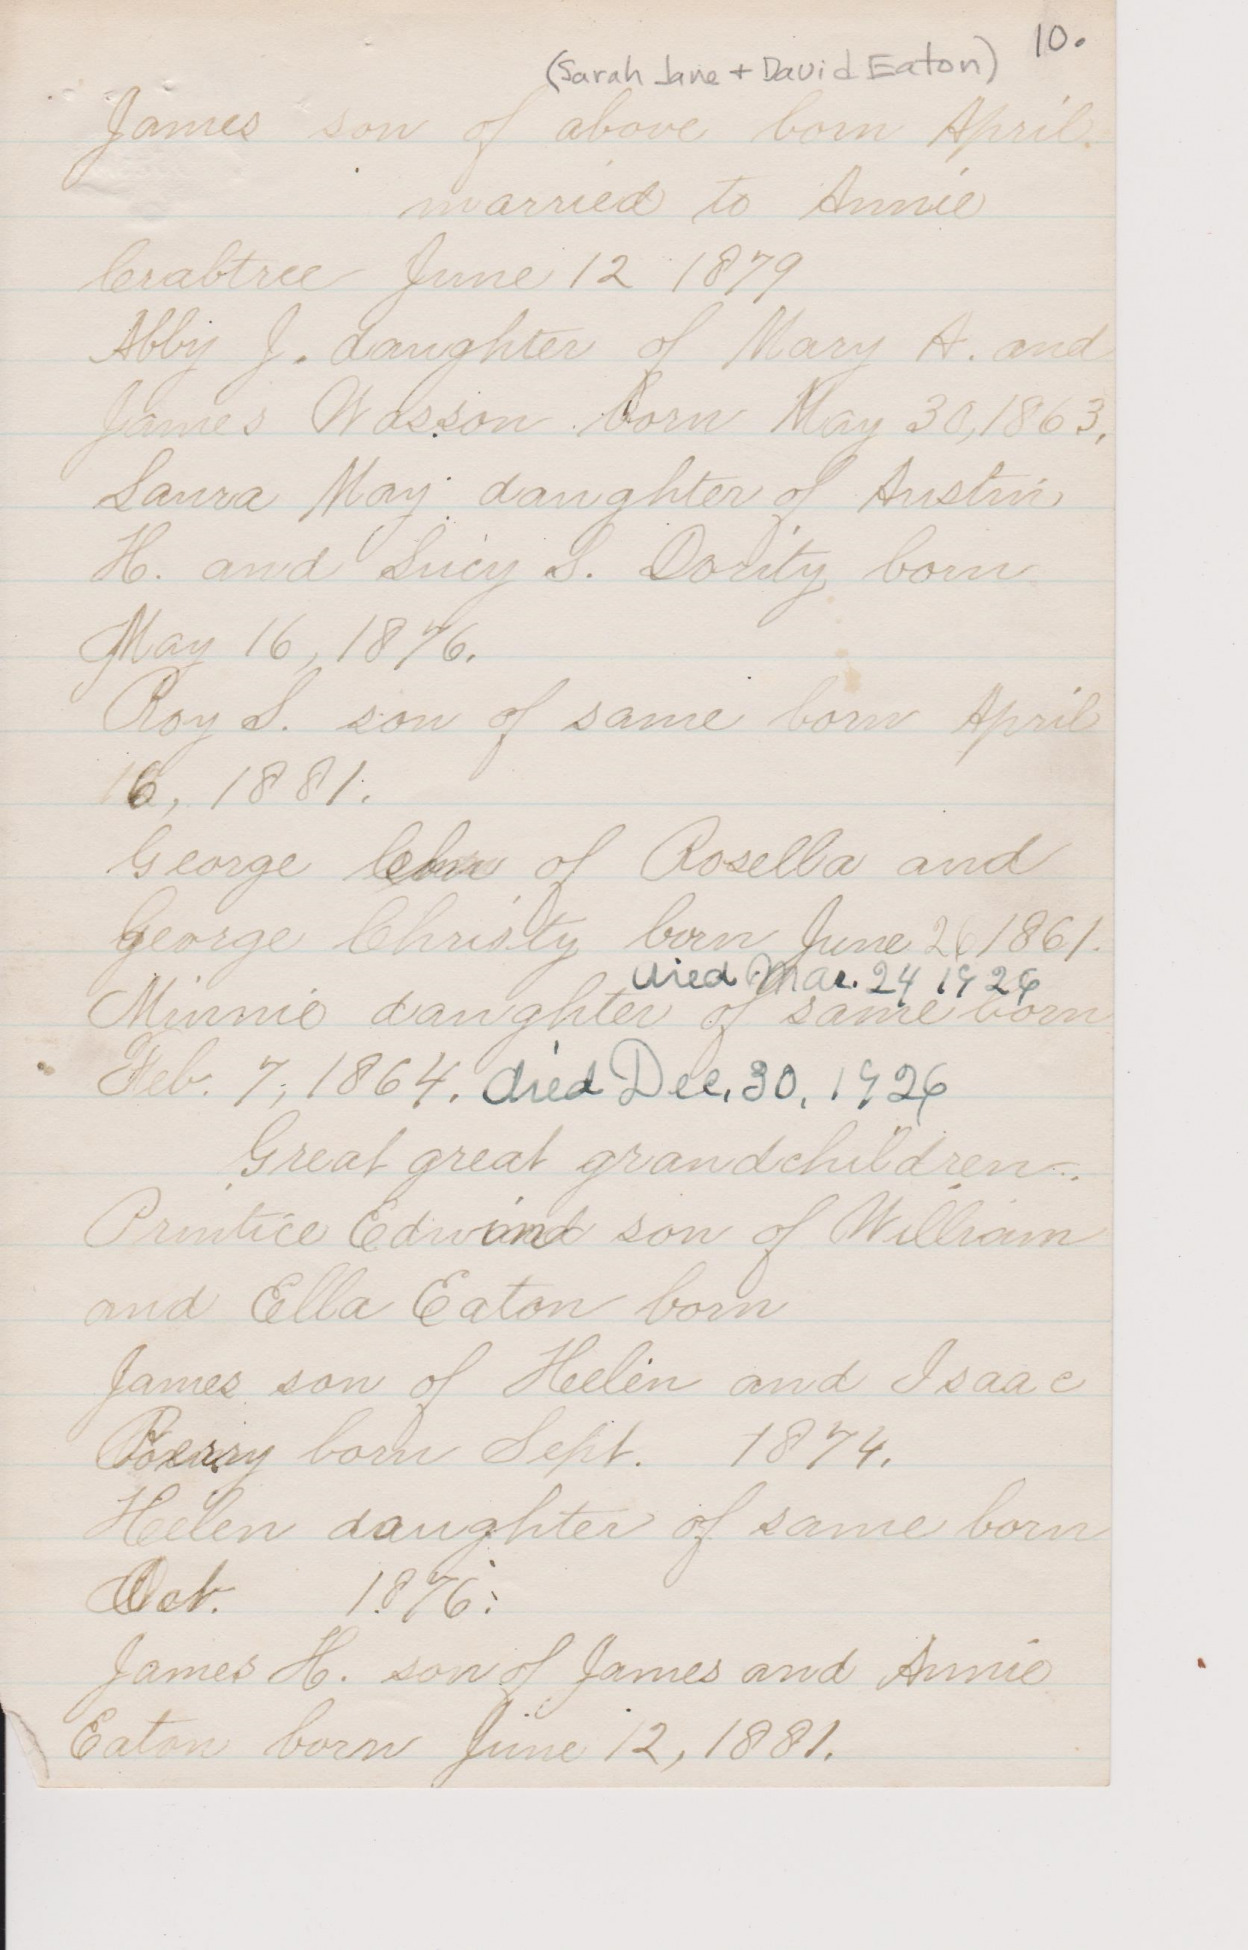 10.
(Sarah Jane + David Eaton)
James son of above born April
married to Annie
Crabtree June 12 1879
Abby J. daughter of Mary A. and
James Wasson born May 30, 1863.
Laura May daughter of Austin
H. and Lucy S. Dority born
May 16, 1876.
Roy S. son of same born April
16, 1881.
George of Rosella and
George Christy born June 26 1861.
died Mar. 24 1926
Minnie daughter of same born
Feb. 7, 1864. died Dec. 30, 1926
Great great grandchildren.
Printice son of William
and Ella Eaton born
James son of Helen and Isaac
born Sept. 1874.
Helen daughter of same born
Oct. 1876.
James H. son of James and Annie
Eaton born June 12, 1881.